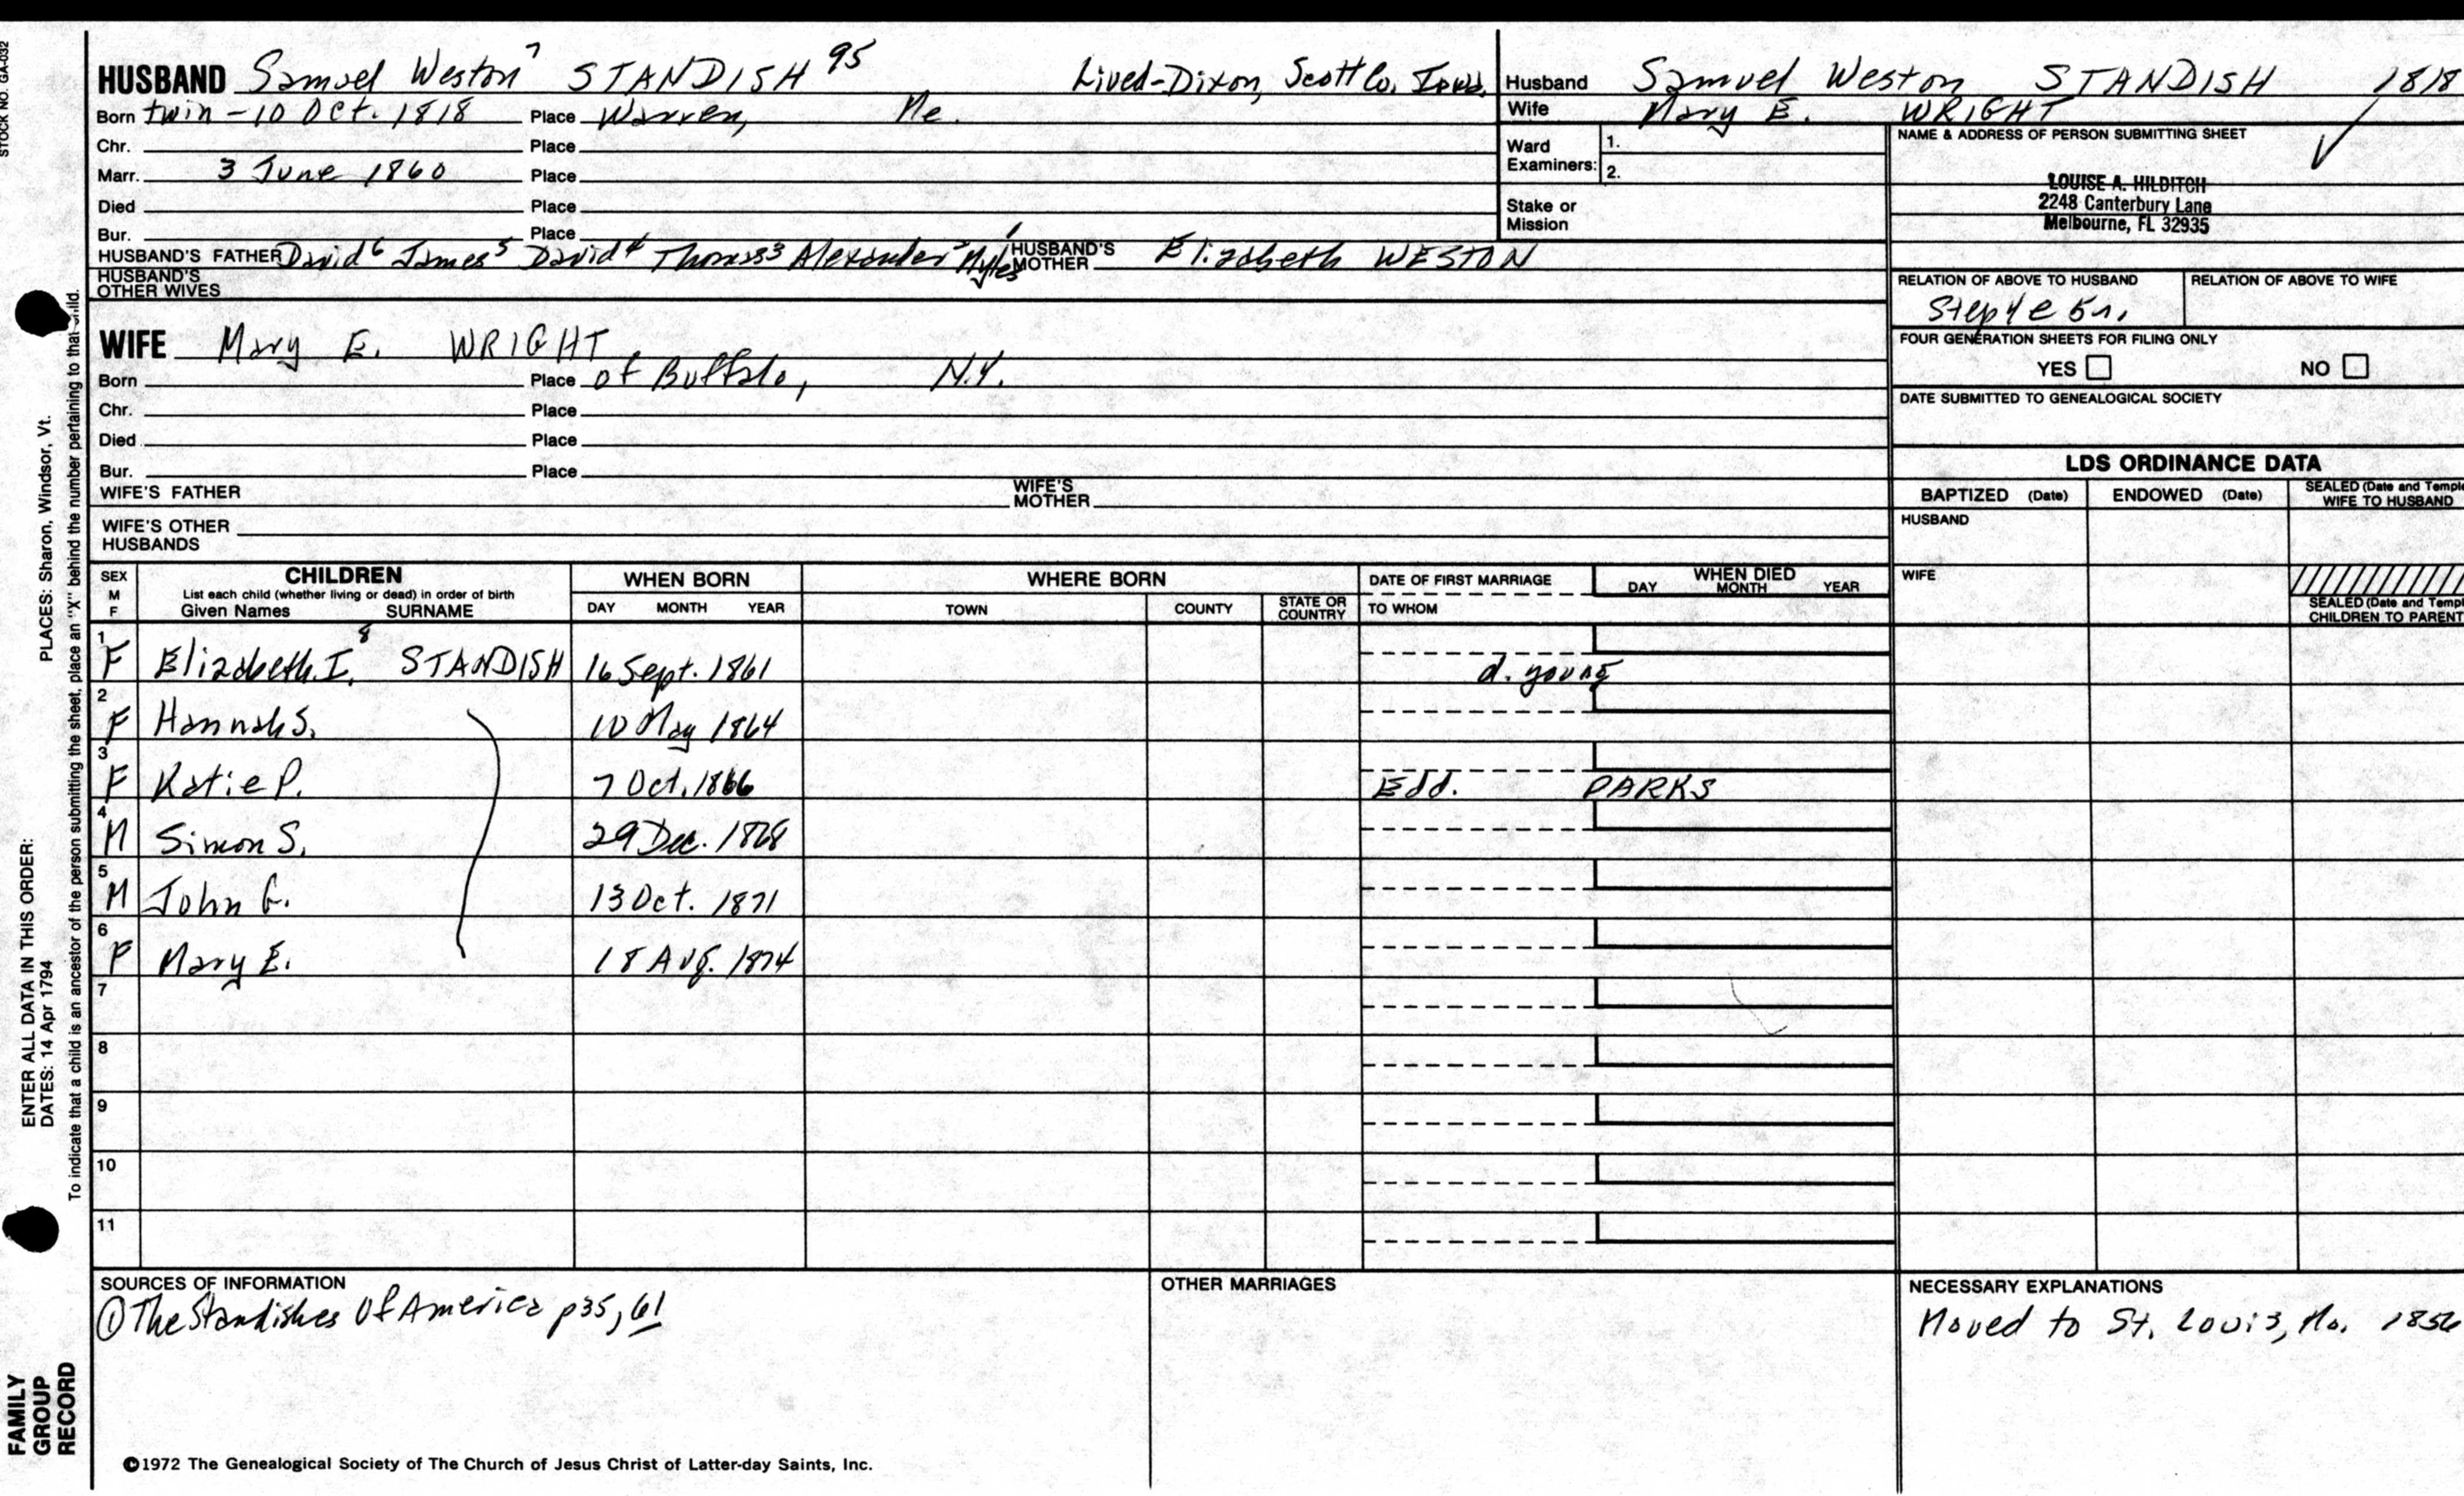 STOCK NO. GA-032
HUSBAND Samuel Weston 7 STANDISH 95 Lived-Dixon, Scott Co. Iowa.
Born twin - 10 Oct. 1818 Place Warren, Me.
Chr. Place
Marr. 3 June 1860 Place
Died Place
Bur. Place
HUSBAND'S FATHER David 6 James 5 David 4 Thomas 3 Alexander 2 Myles 1 HUSBAND'S MOTHER Elizabeth WESTON
HUSBAND'S OTHER WIVES
WIFE Mary E. WRIGHT
Born Place of Buffalo, N.Y.
Chr. Place
Died Place
Bur. Place
WIFE'S FATHER WIFE'S MOTHER
WIFE'S OTHER HUSBANDS
Husband Samuel Weston STANDISH 1818
Wife Mary E. WRIGHT
Ward Examiners: 1.
2.
Stake or Mission
NAME & ADDRESS OF PERSON SUBMITTING SHEET
LOUISE A. HILDITCH
2248 Canterbury Lane
Melbourne, FL 32935
RELATION OF ABOVE TO HUSBAND RELATION OF ABOVE TO WIFE
FOUR GENERATION SHEETS FOR FILING ONLY
YES NO
DATE SUBMITTED TO GENEALOGICAL SOCIETY
LDS ORDINANCE DATA
BAPTIZED (Date) ENDOWED (Date) SEALED (Date and Temple
WIFE TO HUSBAND
HUSBAND
WIFE
SEALED (Date and Templ
CHILDREN TO PARENT
SEX M F CHILDREN WHEN BORN WHERE BORN DATE OF FIRST MARRIAGE WHEN DIED
List each child (whether living or dead) in order of birth
Given Names SURNAME DAY MONTH YEAR TOWN COUNTY STATE OR COUNTRY TO WHOM DAY MONTH YEAR
1 F Elizabeth I. 8 STANDISH 16 Sept. 1861 d. young
2 F Hannah S. 10 May 1864
3 F Katie P. 7 Oct. 1866 Edd. PARKS
4 M Simon S. 29 Dec. 1868
5 M John G. 13 Oct. 1871
6 F Mary E. 18 Aug. 1874
7
8
9
10
11
SOURCES OF INFORMATION
① The Standishes Of America p35, 61
OTHER MARRIAGES
NECESSARY EXPLANATIONS
Moved to St. Louis, Mo. 1856
©1972 The Genealogical Society of The Church of Jesus Christ of Latter-day Saints, Inc.
ENTER ALL DATA IN THIS ORDER:
DATES: 14 Apr 1794 PLACES: Sharon, Windsor, Vt.
To indicate that a child is an ancestor of the person submitting the sheet, place an "X" behind the number pertaining to that child.
FAMILY
GROUP
RECORD